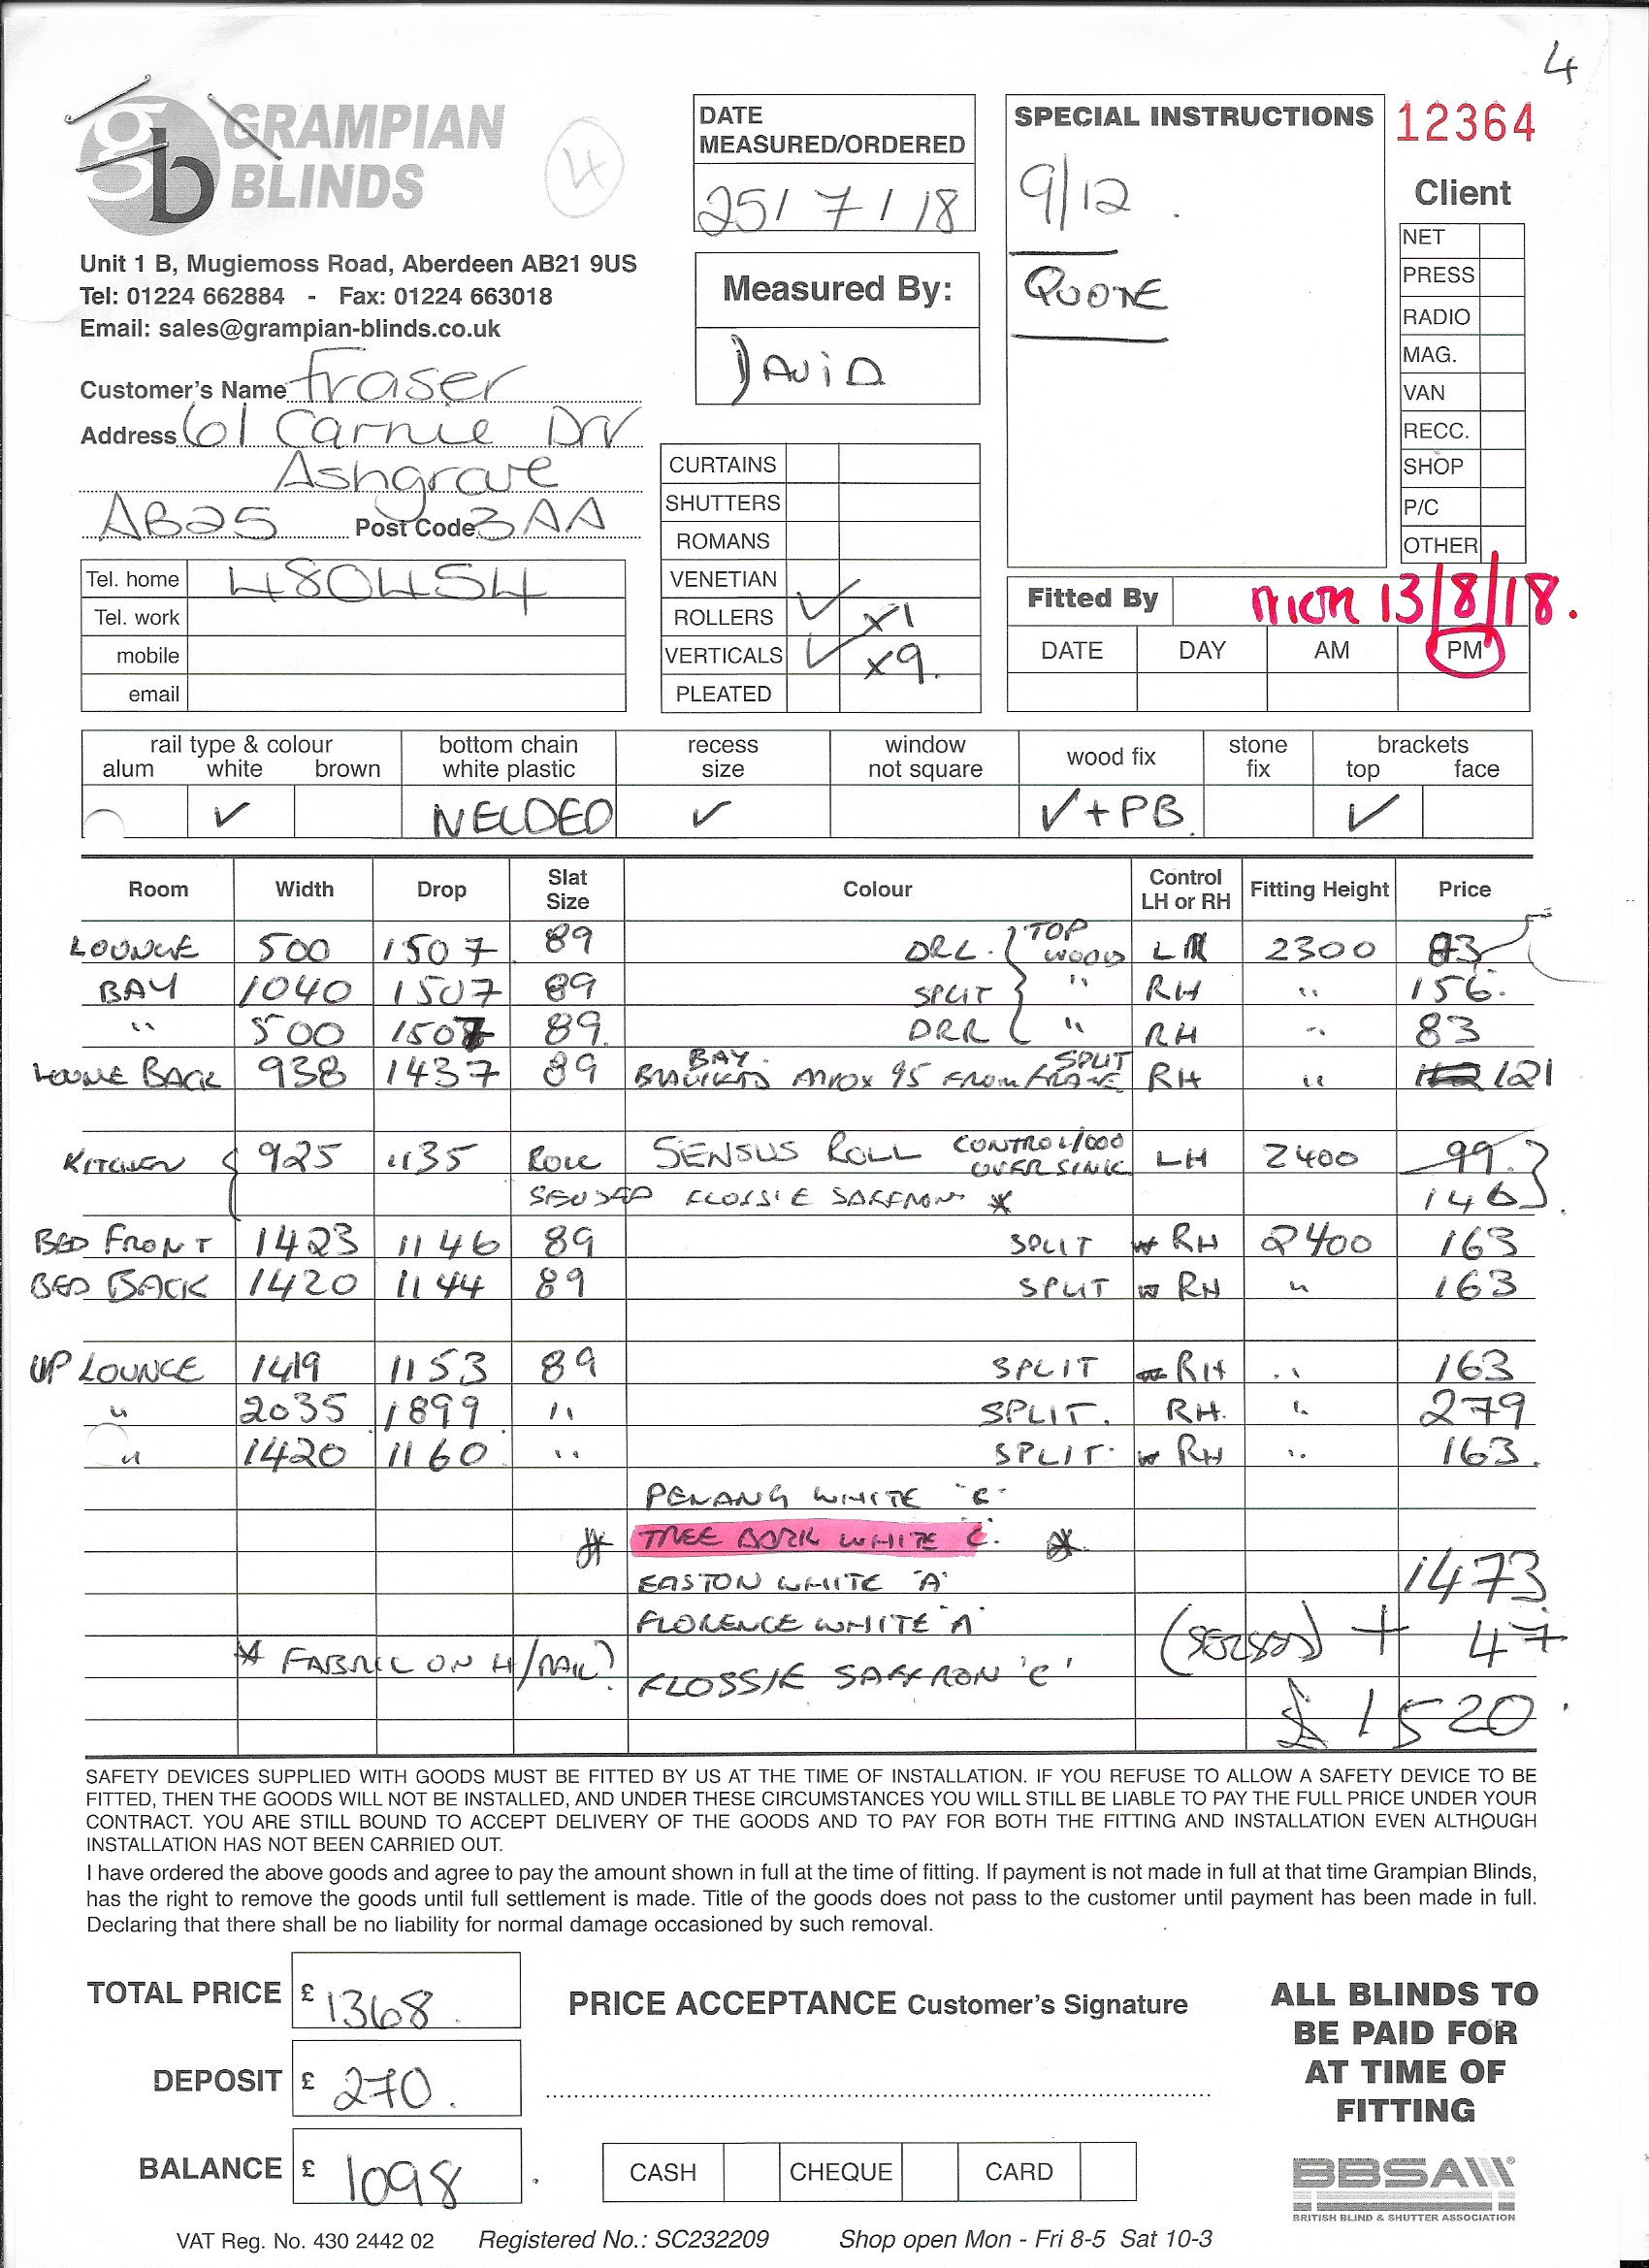 4
GRAMPIAN
BLINDS
4
Unit 1 B, Mugiemoss Road, Aberdeen AB21 9US
Tel: 01224 662884 - Fax: 01224 663018
Email: sales@grampian-blinds.co.uk
Customer's Name Fraser
Address 61 Carnie Drv
Ashgrove
AB25 Post Code 3AA
Tel. home 480454
Tel. work
mobile
email
DATE
MEASURED/ORDERED
25/7/18
Measured By:
DAVID
CURTAINS
SHUTTERS
ROMANS
VENETIAN
ROLLERS ✓ x1
VERTICALS ✓ x9.
PLEATED
SPECIAL INSTRUCTIONS
9/12
QUOTE
12364
Client
NET
PRESS
RADIO
MAG.
VAN
RECC.
SHOP
P/C
OTHER
Fitted By mon 13/8/18.
DATE DAY AM PM
rail type & colour bottom chain recess window wood fix stone brackets
alum white brown white plastic size not square fix top face
✓ WELDED ✓ ✓+PB. ✓
Room Width Drop Slat Size Colour Control LH or RH Fitting Height Price
LOUNGE 500 1507 89 DRL. TOP WOOD LH 2300 83
BAY 1040 1507 89 SPLIT " RH " 156.
" 500 1507 89. DRR " RH " 83
LOUNGE BACK 938 1437 89 BAY BRACKETS APPROX 95 FROM FRAME SPLIT RH " 121
KITCHEN 925 1135 ROLL SENSUS ROLL CONTROL/COD OVER SINK LH 2400 99.
SENSES FLOSSIE SAFFRON * 146.
BED FRONT 1423 1146 89 SPLIT RH 2400 163
BED BACK 1420 1144 89 SPLIT RH " 163
UP LOUNGE 1419 1153 89 SPLIT RH " 163
" 2035 1899 " SPLIT. RH. " 279
" 1420 1160 " SPLIT. RH " 163.
PENANG WHITE "C"
* TREE BARK WHITE 'C'. *
EASTON WHITE 'A' 1473
FLORENCE WHITE 'A' (SENSES) + 47
* FABRIC ON H/RAIL? FLOSSIE SAFFRON 'C'
£1520.
SAFETY DEVICES SUPPLIED WITH GOODS MUST BE FITTED BY US AT THE TIME OF INSTALLATION. IF YOU REFUSE TO ALLOW A SAFETY DEVICE TO BE
FITTED, THEN THE GOODS WILL NOT BE INSTALLED, AND UNDER THESE CIRCUMSTANCES YOU WILL STILL BE LIABLE TO PAY THE FULL PRICE UNDER YOUR
CONTRACT. YOU ARE STILL BOUND TO ACCEPT DELIVERY OF THE GOODS AND TO PAY FOR BOTH THE FITTING AND INSTALLATION EVEN ALTHOUGH
INSTALLATION HAS NOT BEEN CARRIED OUT.
I have ordered the above goods and agree to pay the amount shown in full at the time of fitting. If payment is not made in full at that time Grampian Blinds,
has the right to remove the goods until full settlement is made. Title of the goods does not pass to the customer until payment has been made in full.
Declaring that there shall be no liability for normal damage occasioned by such removal.
TOTAL PRICE £ 1368.
DEPOSIT £ 270.
BALANCE £ 1098.
PRICE ACCEPTANCE Customer's Signature
CASH CHEQUE CARD
ALL BLINDS TO
BE PAID FOR
AT TIME OF
FITTING
BBSA
BRITISH BLIND & SHUTTER ASSOCIATION
VAT Reg. No. 430 2442 02 Registered No.: SC232209 Shop open Mon - Fri 8-5 Sat 10-3